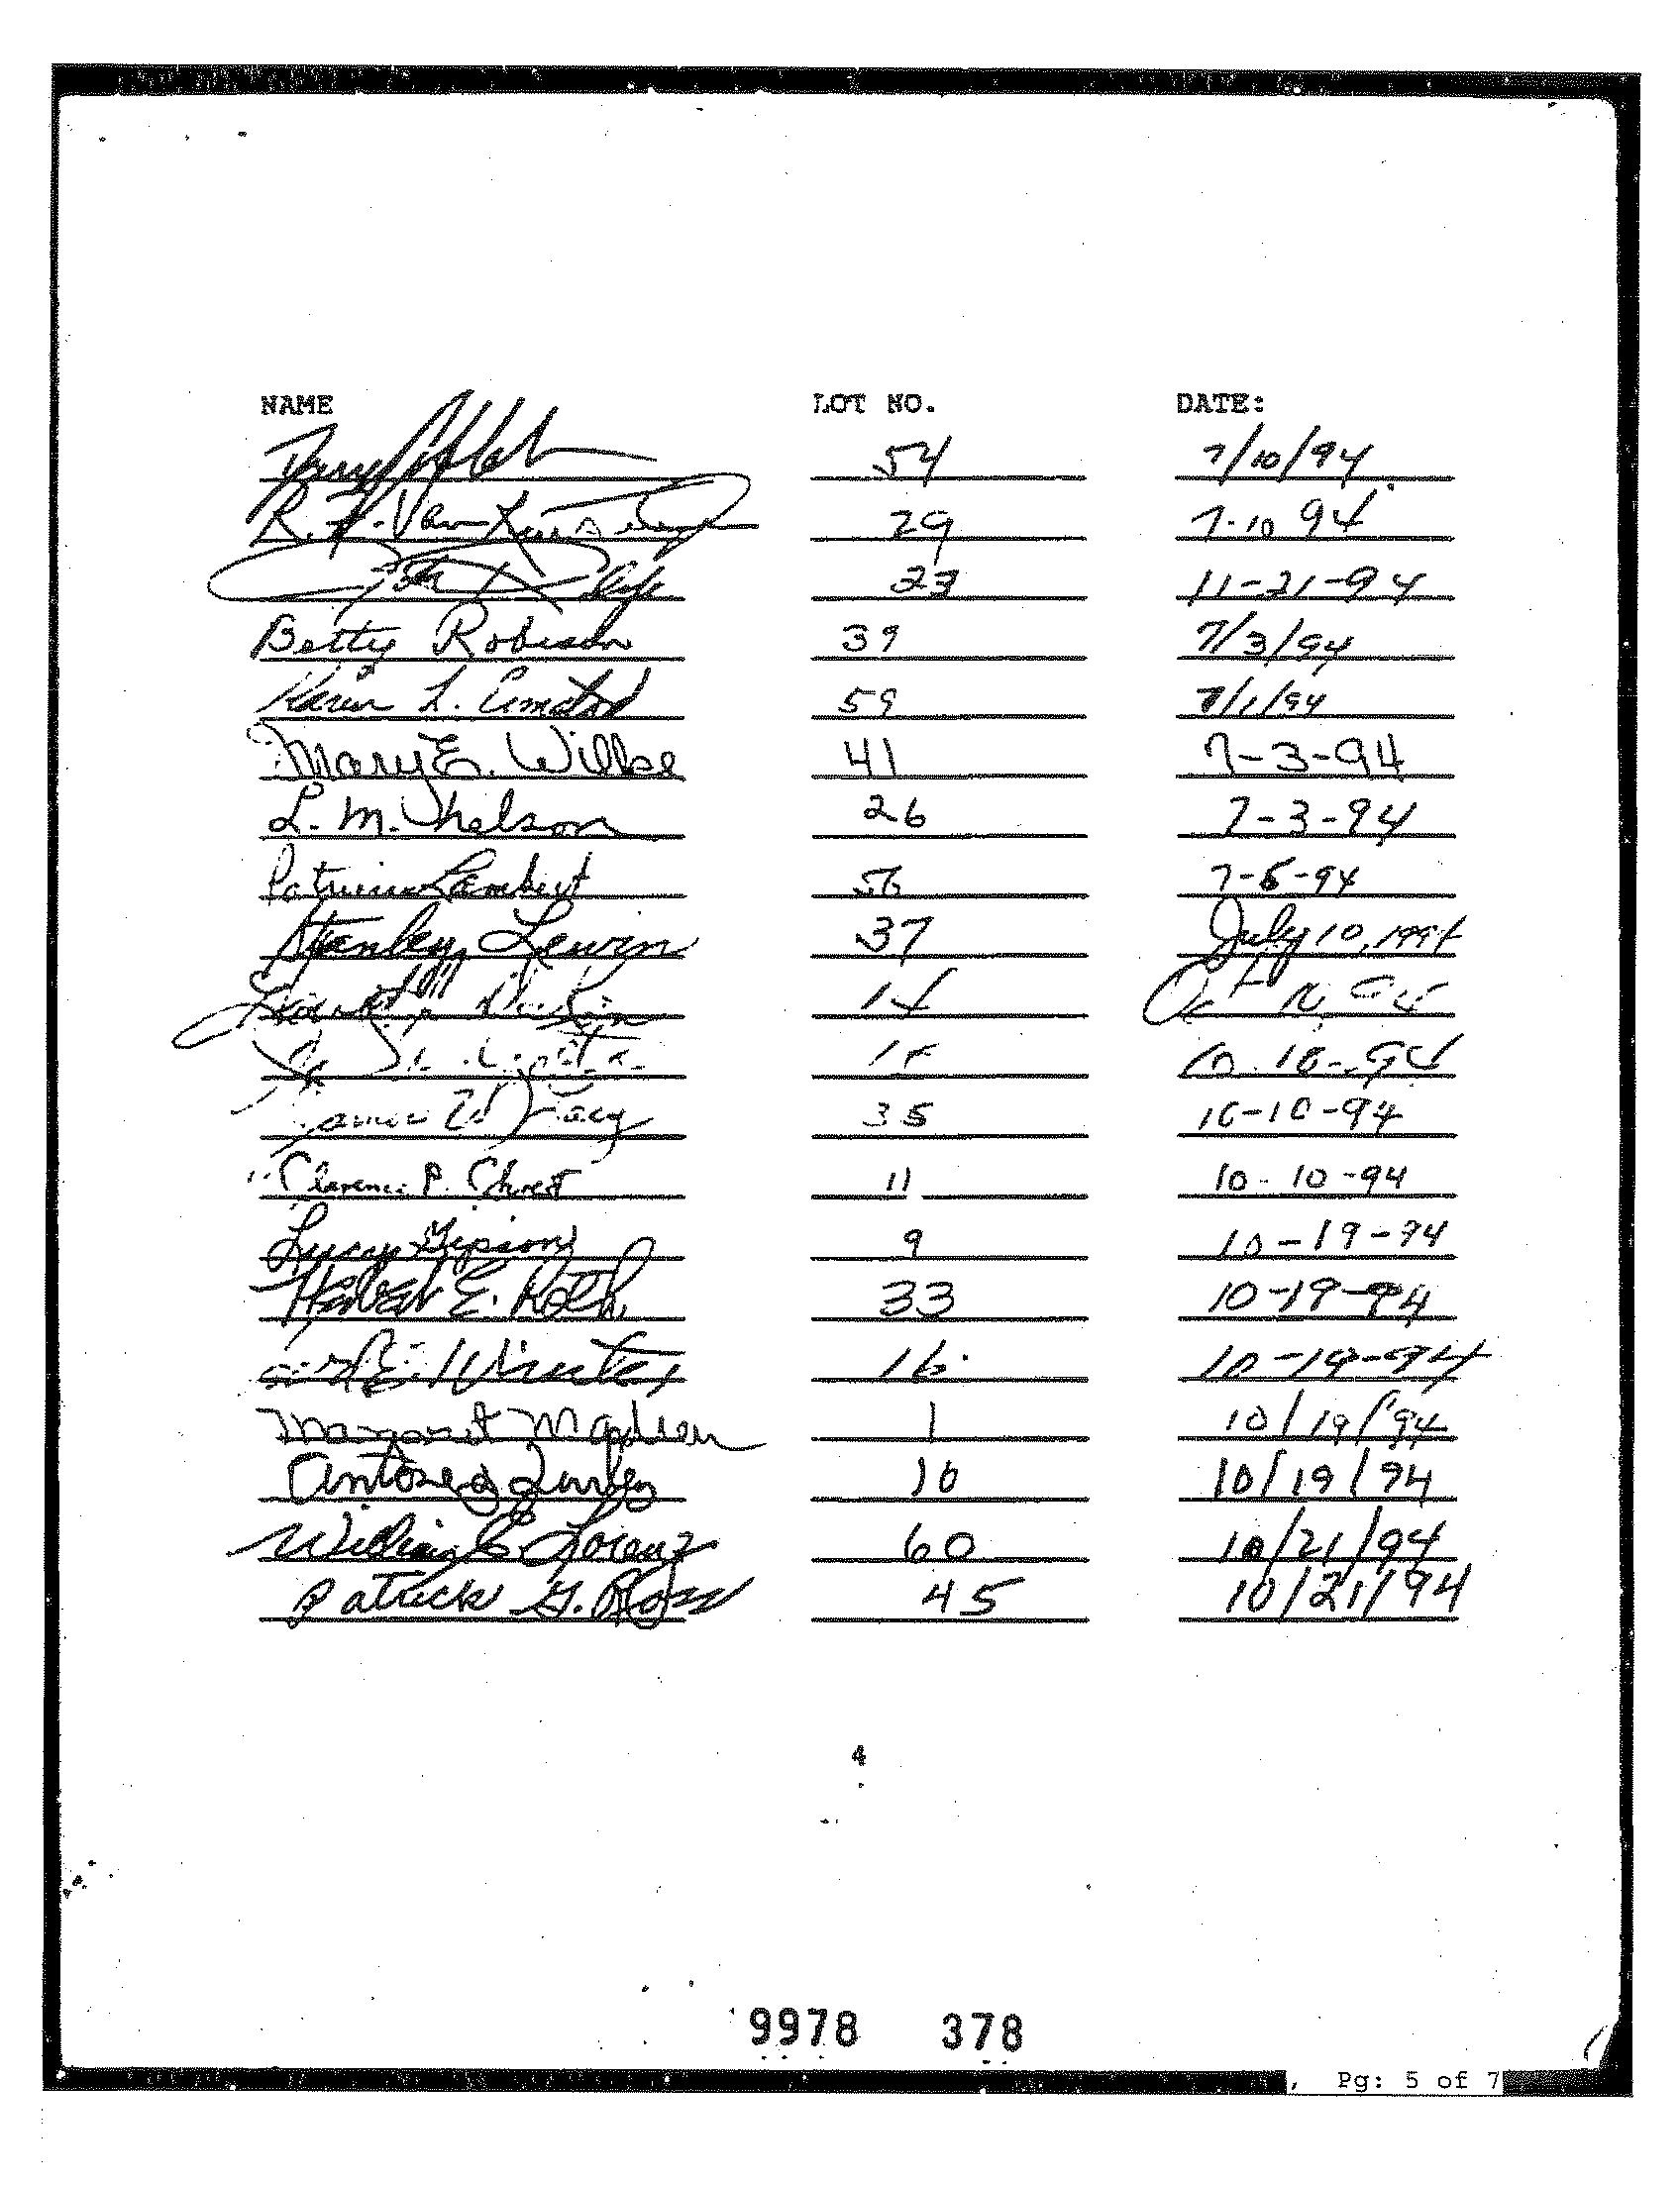 NAME LOT NO. DATE:
54 7/10/94
R. F. Van 29 7-10 94
23 11-21-94
Betty Robison 39 7/3/94
Karen L. 59 7/1/94
Mary E. Wilkse 41 7-3-94
L. M. Nelson 26 7-3-94
Patricia Lambert 56 7-5-94
Stanley Lewin 37 July 10, 1994
14 Oct 10, 94
10-10-94
James W Tracy 35 10-10-94
Clarence P. Christ 11 10-10-94
Lucy Gipson 9 10-19-94
Herbert E. Roth 33 10-19-94
E. Winter 16 10-19-94
Margaret Madsen 1 10/19/94
10 10/19/94
William C. Lorenz 60 10/21/94
Patrick G. Ross 45 10/21/94
4
9978 378
, Pg: 5 of 7